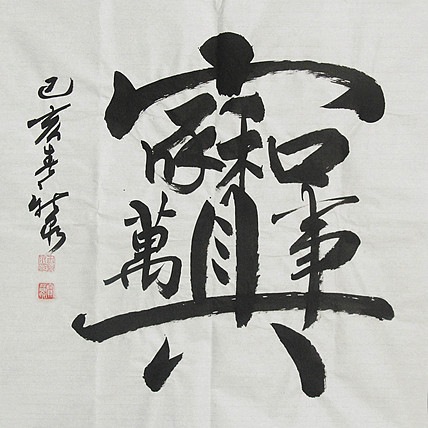 家和萬事興
己亥春